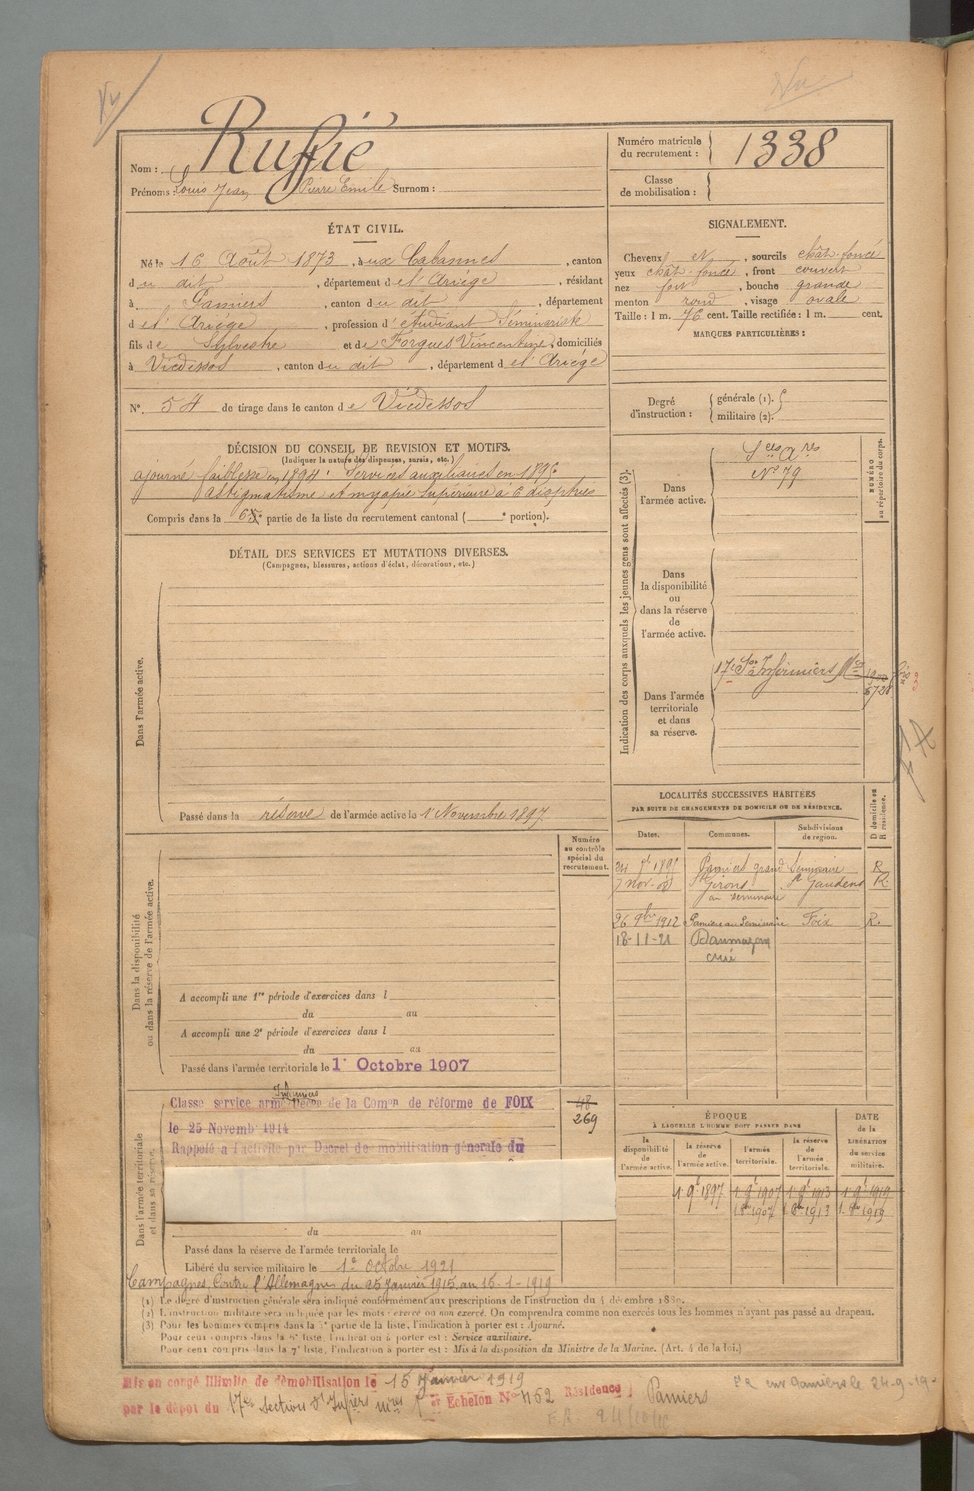 Nom : Ruffié
Prénoms : Louis Jean Pierre Emile Surnom :
Numéro matricule du recrutement : 1338
Classe de mobilisation :
ÉTAT CIVIL.
Né le 16 Août 1873, à aux Cabannes, canton
du dit, département de l'Ariège, résidant
à Pamiers, canton du dit, département
de l'Ariège, profession d'étudiant Séminariste
fils de Sylvestre et de Forgues Vincentine, domiciliés
à Vicdessos, canton du dit, département de l'Ariège
N° 54 de tirage dans le canton de Vicdessos
SIGNALEMENT.
Cheveux N, sourcils chât. foncé
yeux chât. foncé, front couvert
nez fort, bouche grande
menton rond, visage ovale
Taille : 1 m. 76 cent. Taille rectifiée : 1 m. cent.
MARQUES PARTICULIÈRES :
Degré d'instruction : générale (1). militaire (2).
DÉCISION DU CONSEIL DE REVISION ET MOTIFS.
(Indiquer la nature des dispenses, sursis, etc.)
ajourné faiblesse en 1894. Services auxiliaires en 1895
astigmatisme et myopie supérieure à 6 dioptries
Compris dans la 6e partie de la liste du recrutement cantonal ( e portion).
DÉTAIL DES SERVICES ET MUTATIONS DIVERSES.
(Campagnes, blessures, actions d'éclat, décorations, etc.)
Dans l'armée active.
Passé dans la réserve de l'armée active le 1 Novembre 1897.
Indication des corps auxquels les jeunes gens sont affectés (3).
NUMÉRO au répertoire du corps.
Dans l'armée active.
Sces Ares
N° 79
Dans la disponibilité ou dans la réserve de l'armée active.
Dans l'armée territoriale et dans sa réserve.
17e Son Infirmiers Mres
LOCALITÉS SUCCESSIVES HABITÉES
PAR SUITE DE CHANGEMENTS DE DOMICILE OU DE RÉSIDENCE.
Dates. Communes. Subdivisions de région. D domicile ou R résidence.
Pamiers grand Séminaire R
St Girons St Gaudens R
au séminaire
26 9bre 1912 Pamiers au Séminaire Foix R.
18-11-21 Daumazan
curé
Dans la disponibilité ou dans la réserve de l'armée active.
Numéro au contrôle spécial du recrutement.
A accompli une 1re période d'exercices dans l
du au
A accompli une 2e période d'exercices dans l
du au
Passé dans l'armée territoriale le 1° Octobre 1907
Dans l'armée territoriale et dans sa réserve.
Infirmiers
Classé service armé Décon de la Comon de réforme de FOIX
le 25 Novemb 1914
Rappelé à l'activité par Décret de mobilisation générale du
48
269
du au
Passé dans la réserve de l'armée territoriale le
Libéré du service militaire le 1er Octobre 1921
Campagnes Contre l'Allemagne du 25 Janvier 1915 au 15-1-1919
ÉPOQUE
À LAQUELLE L'HOMME DOIT PASSER DANS
la disponibilité de l'armée active. la réserve de l'armée active. l'armée territoriale. la réserve de l'armée territoriale.
DATE de la LIBÉRATION du service militaire.
1 9b 1897 1 9b 1907 1 9b 1913 1 9b 1919
1 8bre 1907 1 8bre 1913 1 8bre 1919
(1) Le degré d'instruction générale sera indiqué conformément aux prescriptions de l'instruction du 4 décembre 1889.
(2) L'instruction militaire sera indiquée par les mots : exercé ou non exercé. On comprendra comme non exercés tous les hommes n'ayant pas passé au drapeau.
(3) Pour les hommes compris dans la 5e partie de la liste, l'indication à porter est : Ajourné.
Pour ceux compris dans la 6e liste, l'indication à porter est : Service auxiliaire.
Pour ceux compris dans la 7e liste, l'indication à porter est : Mis à la disposition du Ministre de la Marine. (Art. 4 de la loi.)
Mis en congé illimité de démobilisation le 15 Janvier 1919
par le dépôt du 17e Section d'Infiers mres Echelon N° 452 Résidence Pamiers